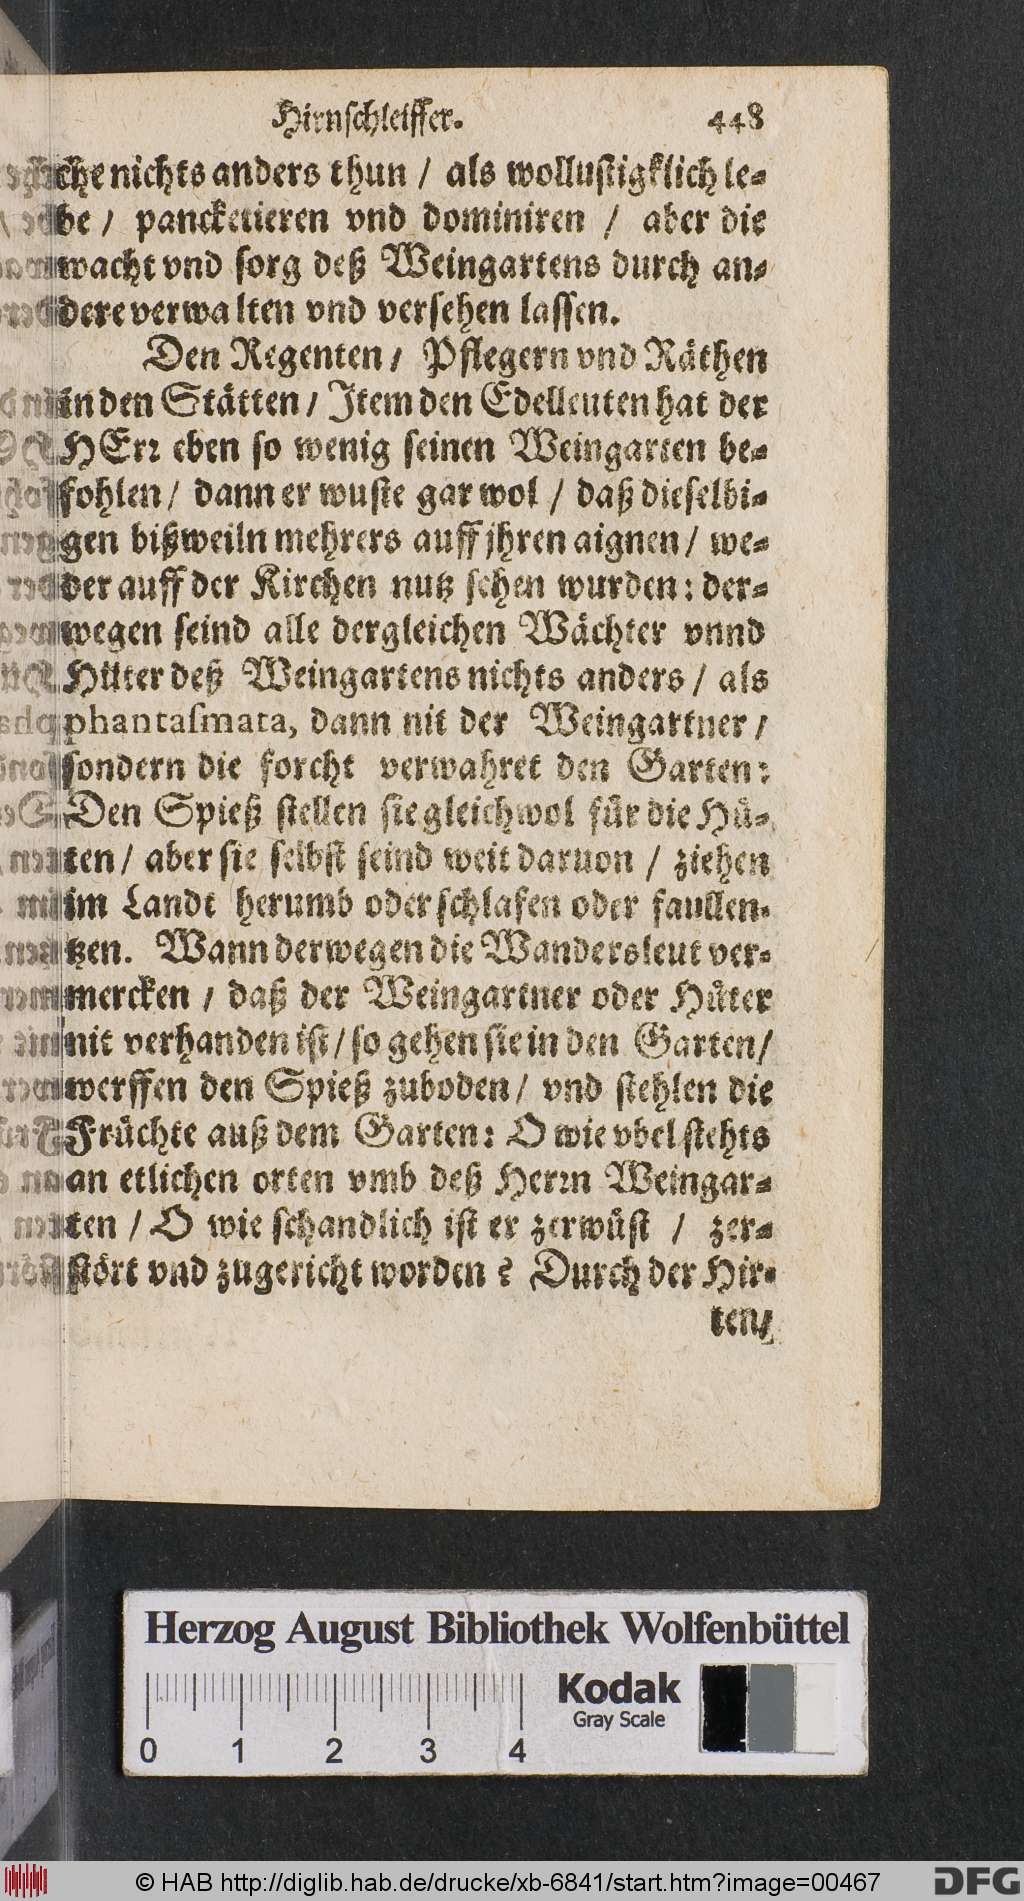 Hirnschleiffer. 448
che nichts anders thun / als wollustigklich le⸗
be / pancketieren vnd dominiren / aber die
wacht vnd sorg deß Weingartens durch an⸗
dere verwalten vnd versehen lassen.
Den Regenten / Pflegern vnd Räthen
in den Stätten / Item den Edelleuten hat der
HErꝛ eben so wenig seinen Weingarten be⸗
fohlen / dann er wuste gar wol / daß dieselbi⸗
gen bißweiln mehrers auff jhren aignen / we⸗
der auff der Kirchen nutz sehen wurden: der⸗
wegen seind alle dergleichen Wächter vnnd
Hüter deß Weingartens nichts anders / als
phantaſmata, dann nit der Weingartner /
sondern die forcht verwahret den Garten:
Den Spieß stellen sie gleichwol für die Hü⸗
ten / aber sie selbst seind weit daruon / ziehen
im Landt herumb oder schlafen oder faullen⸗
tzen. Wann derwegen die Wandersleut ver⸗
mercken / daß der Weingartner oder Hüter
nit verhanden ist / so gehen sie in den Garten /
werffen den Spieß zuboden / vnd stehlen die
Früchte auß dem Garten: O wie vbel stehts
an etlichen orten vmb deß Herꝛn Weingar⸗
ten / O wie schandlich ist er zerwüst / zer⸗
stört vnd zugericht worden? Durch der Hir⸗
ten /
Herzog August Bibliothek Wolfenbüttel
Kodak
Gray Scale
0 1 2 3 4
© HAB http://diglib.hab.de/drucke/xb-6841/start.htm?image=00467
DFG